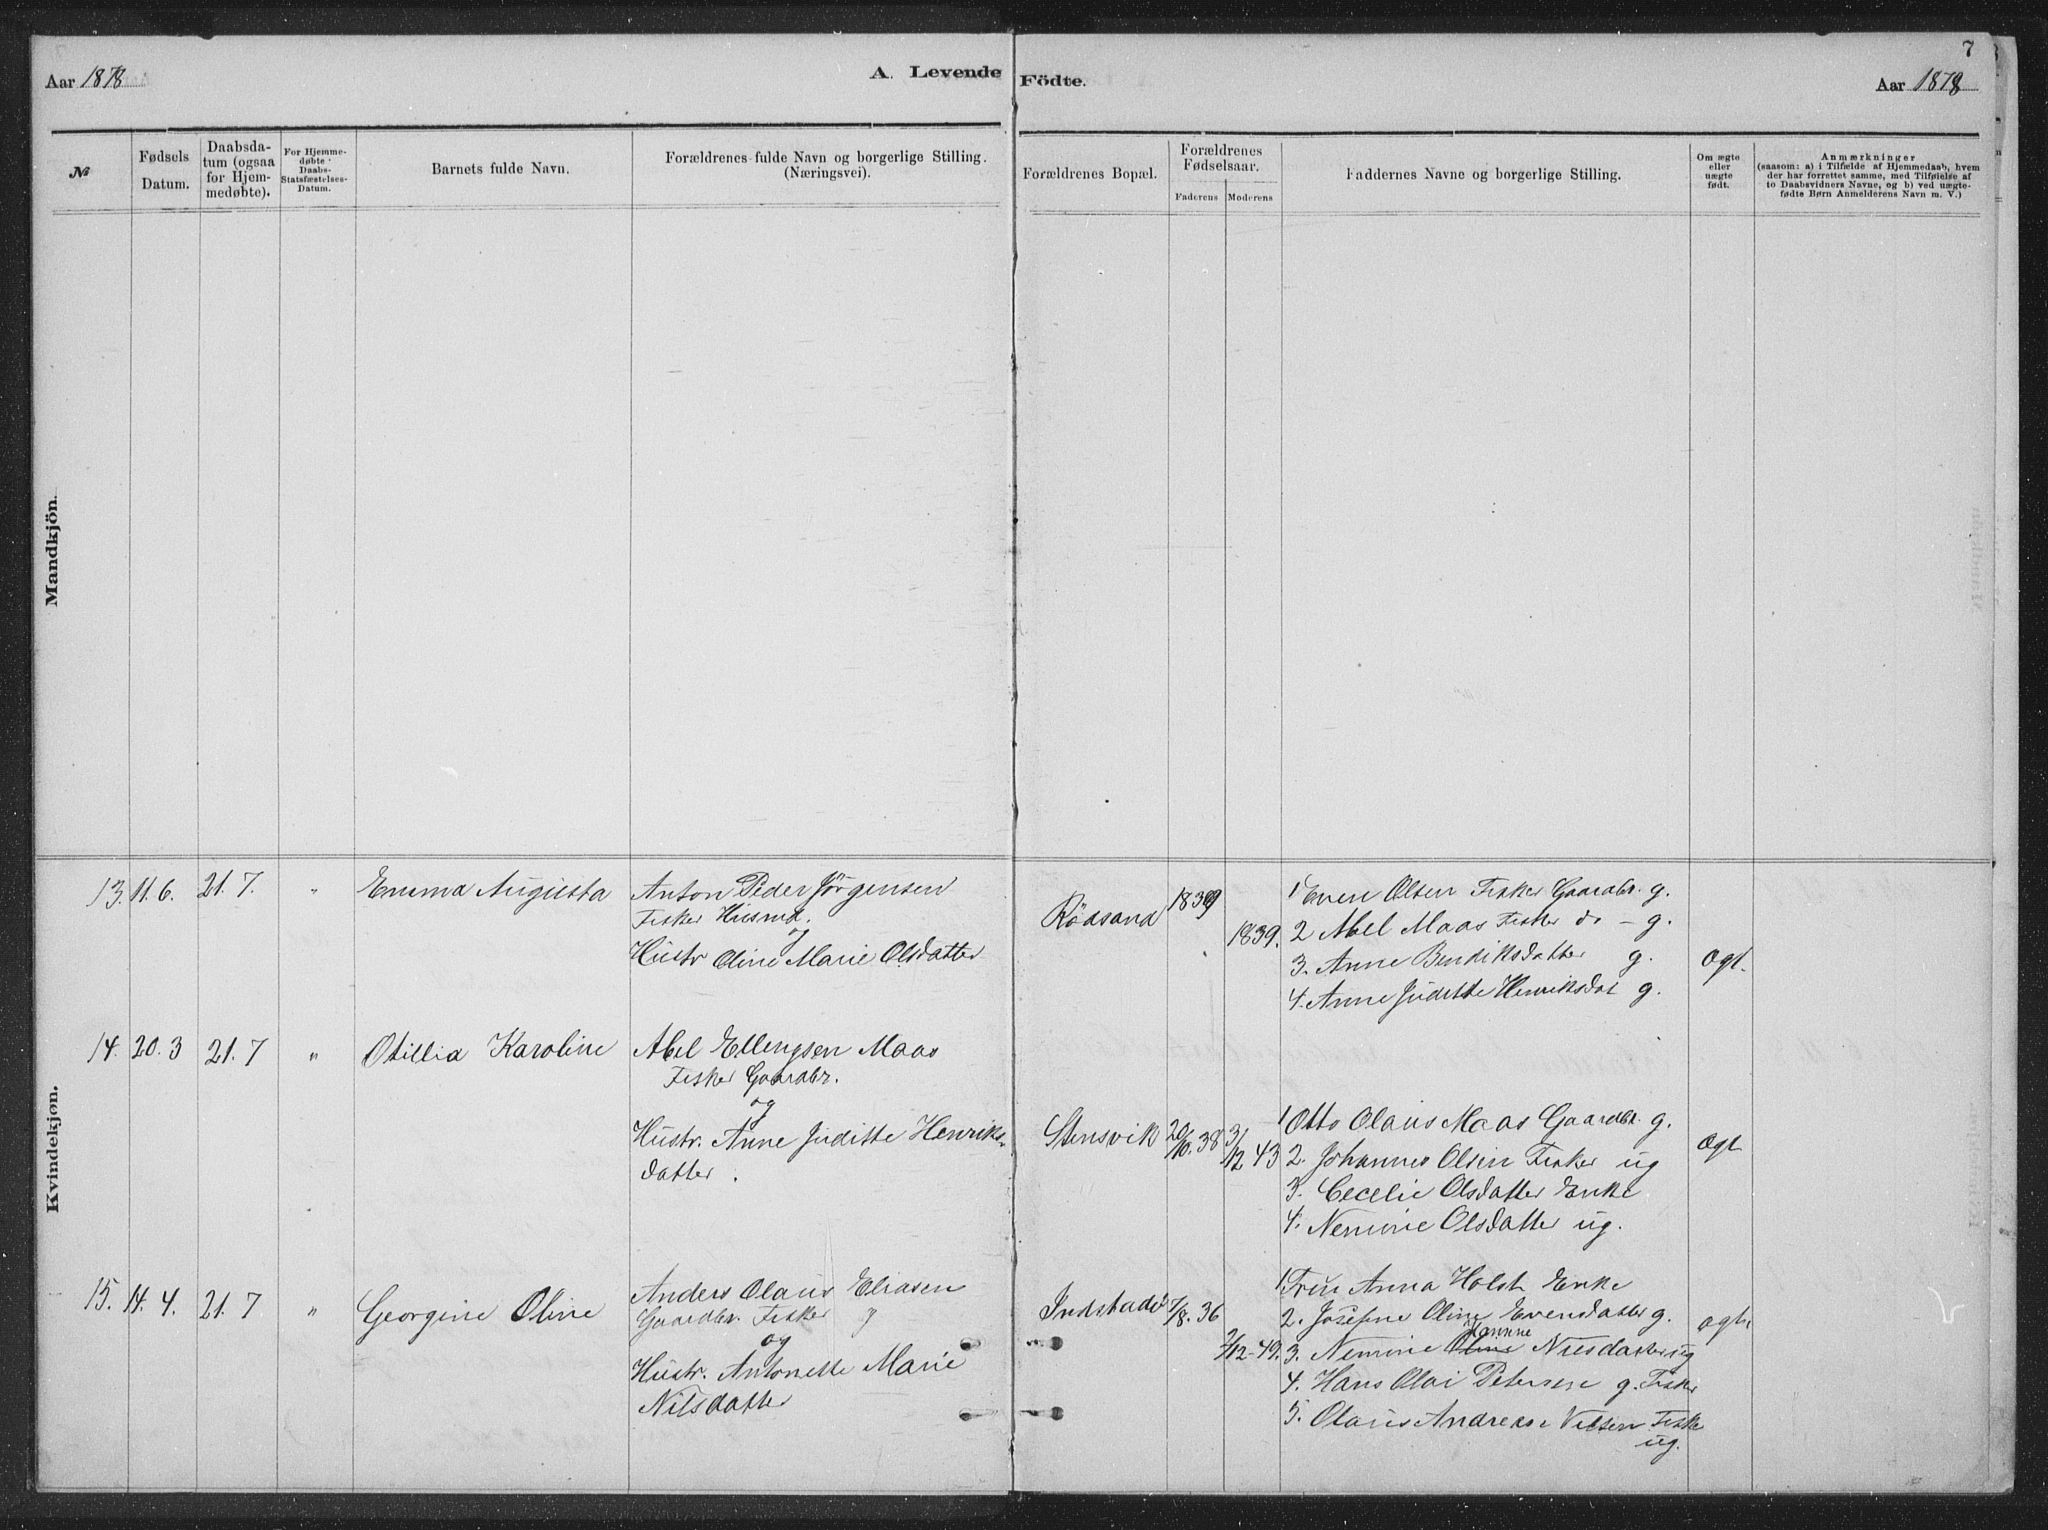 7
Aar 1878
A. Levende Födte.
Aar 1878
№
Fødsels Datum.
Daabsda-
tum (ogsaa
for Hjem-
medøbte).
For Hjemme-
døbte
Daabs-
Statsfæstelses-
Datum.
Barnets fulde Navn.
Forældrenes fulde Navn og borgerlige Stilling.
(Næringsvei).
Forældrenes Bopæl.
Forældrenes
Fødselsaar.
Faderens Moderens
Faddernes Navne og borgerlige Stilling.
Om ægte
eller
uægte
født.
Anmærkninger
(saasom: a) i Tilfælde af Hjemmedaab, hvem
der har forrettet samme, med Tilføielse af
to Daabsvidners Navne, og b) ved uægte-
fødte Børn Anmelderens Navn m. V.)
Mandkjön.
Kvindekjøn.
13. 11. 6. 21. 7. " Emma Augusta
Anton Peder Jörgensen
Fisker Husmd.
og
Hustr Oline Marie Olsdatter
Rödsand 1839
1839.
1 Even Olsen Fisker Gaardbr. g.
2 Abel Maas Fisker do - g.
3. Anne Bendiksdatter g.
4. Anne Juditte Henriksdat g.
Ægt.
14. 20. 3 21. 7 " Otillia Karoline
Abel Ellengsen Maas
Fisker Gaardbr.
og
Hustr. Anne Juditte Henriks-
datter.
Stensvik 20/10. 38 3/12 43
1 Otto Olaus Maas Gaardbr. g.
2. Johannes Olsen Fisker ug
3. Cecelie Olsdatter Enke
4. Nemine Olsdatter ug.
Ægt
15. 14. 4. 21. 7 " Georgine Oline
Anders Olaus Eliasen
Gaardbr. Fisker
og
Hustr. Antonette Marie
Nilsdatter
Indstadö 7/8. 36
2/12-49.
1 Fru Anna Holst Enke
2. Josefine Oline Evensdatter g.
Hanne
3. Nemine Oline Nilsdatter ug
4. Hans Olai Petersen g. Fisker
5. Olaus Andreas Nilsen Fisker
ug.
Ægt.